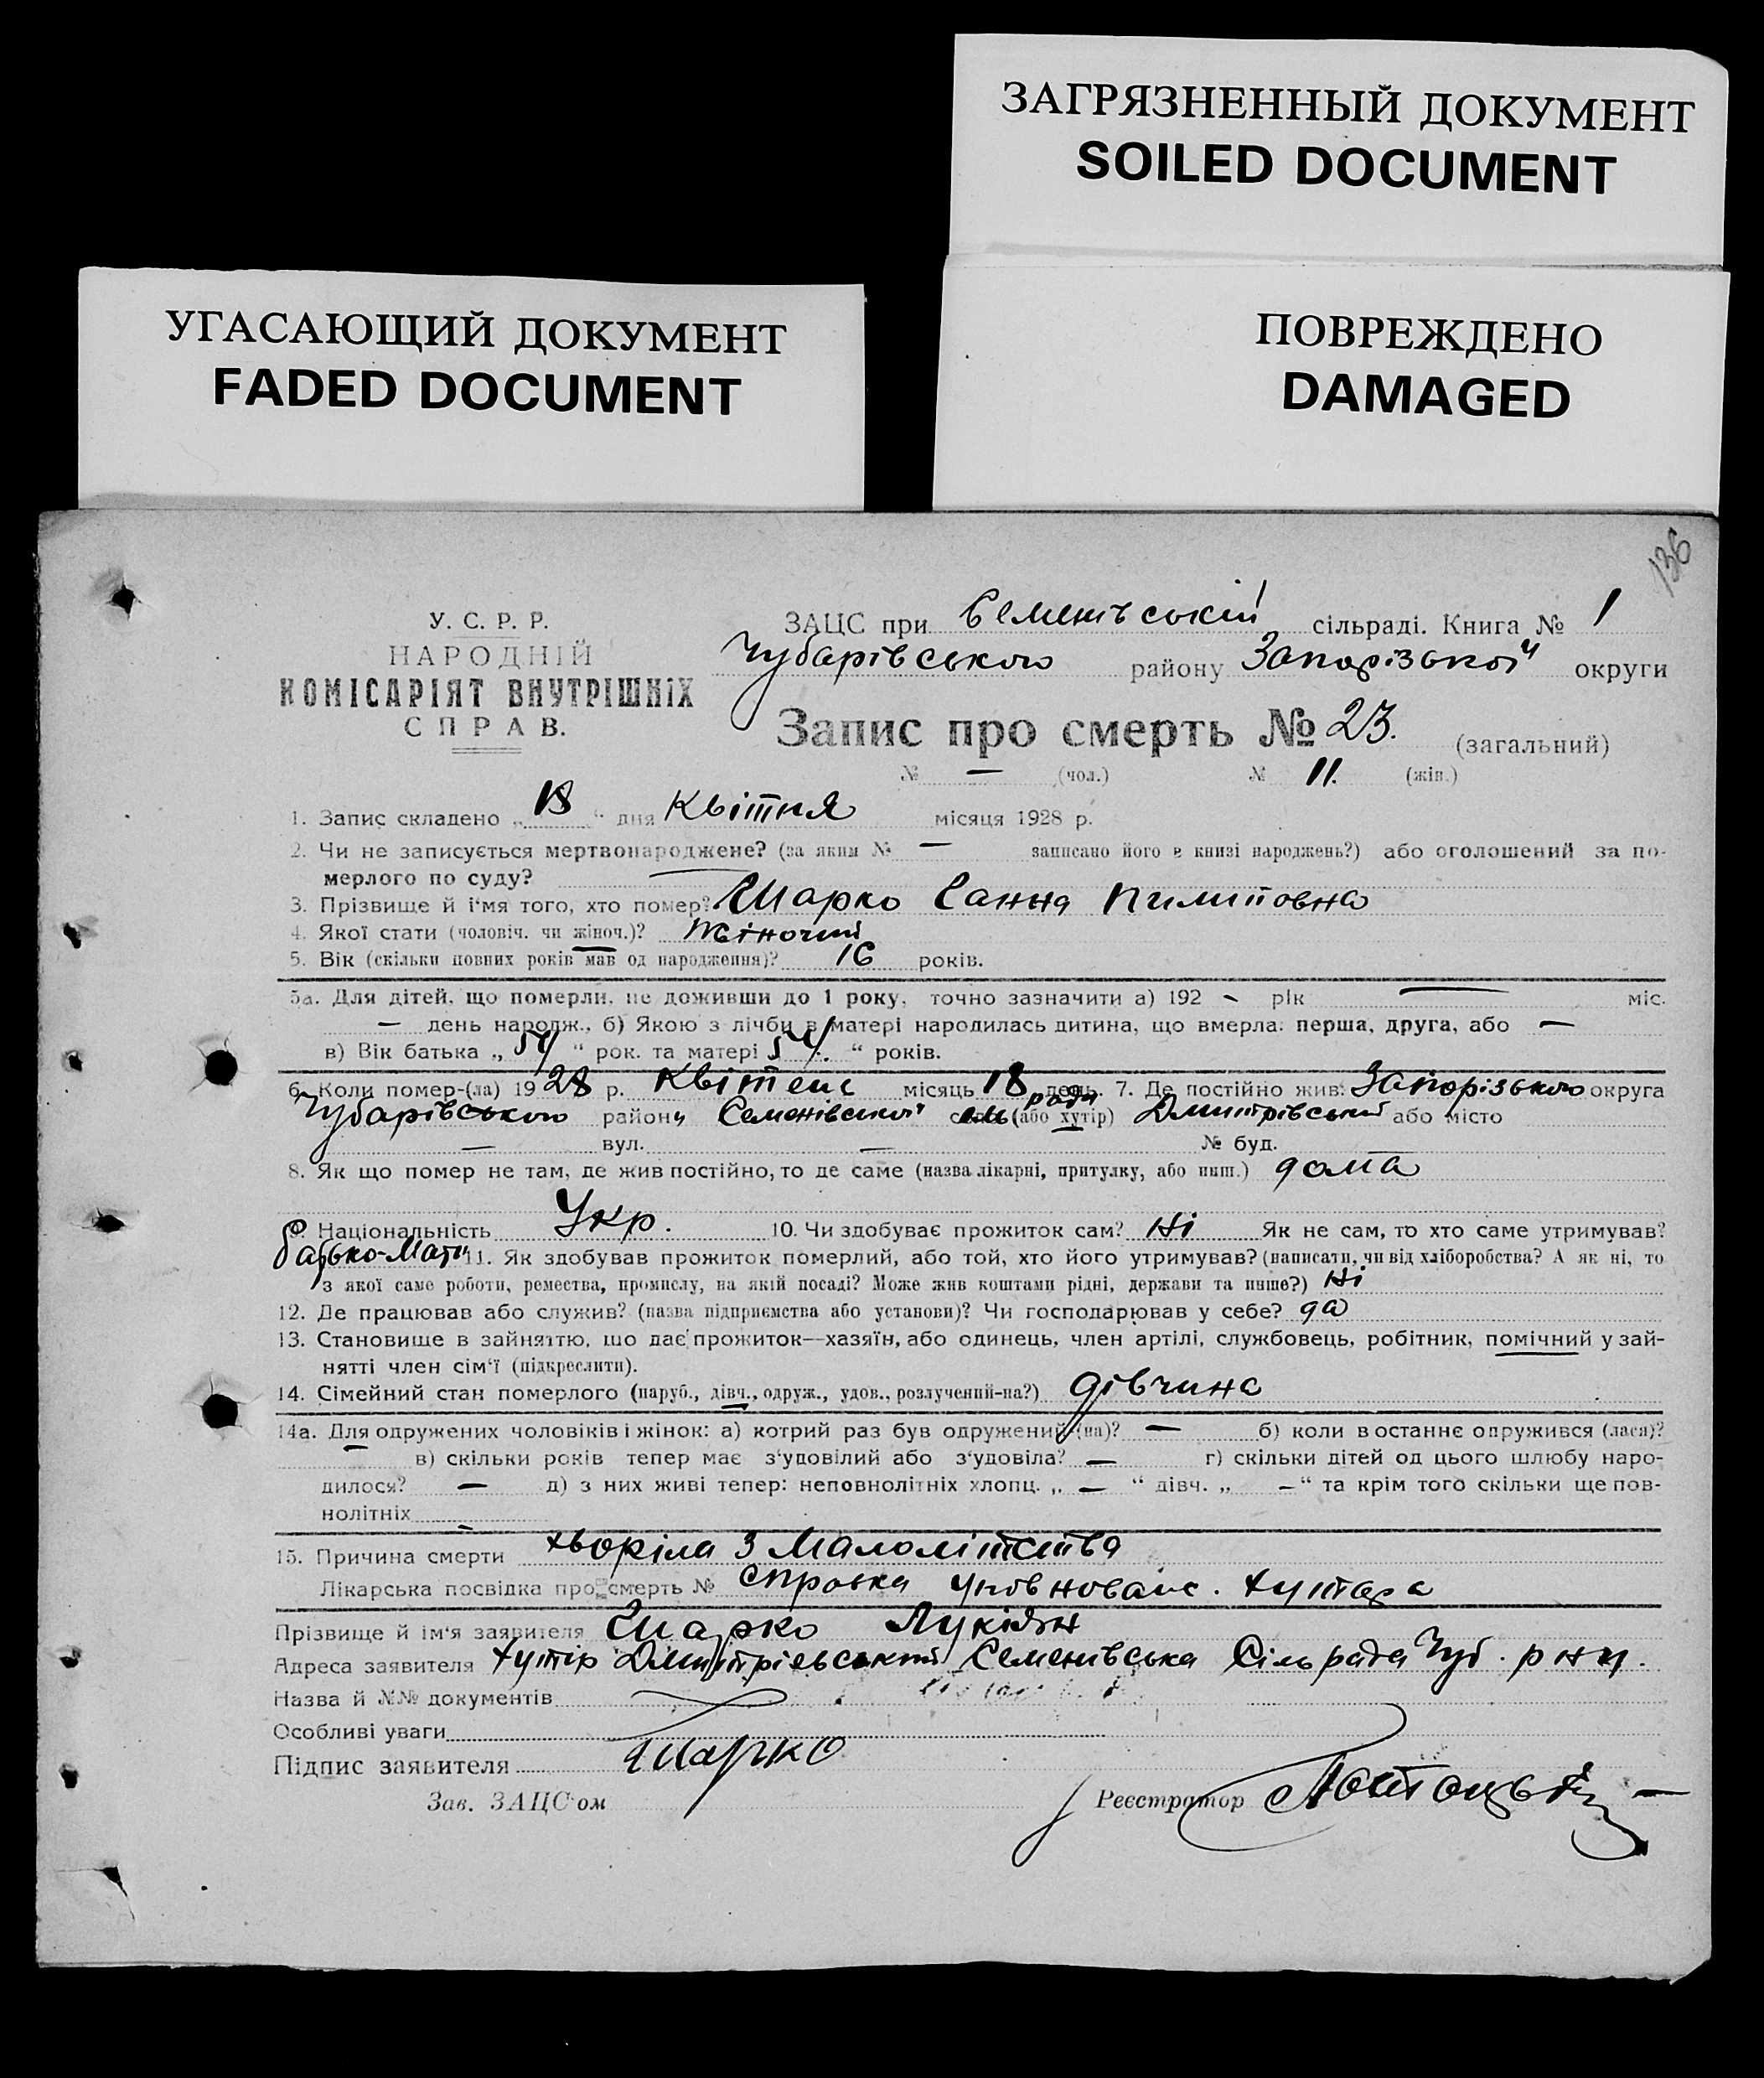 ЗАГРЯЗНЕННЫЙ ДОКУМЕНТ
SOILED DOCUMENT
УГАСАЮЩИЙ ДОКУМЕНТ
FADED DOCUMENT
ПОВРЕЖДЕНО
DAMAGED
136
У. С. Р. Р.
НАРОДНІЙ
КОМІСАРІЯТ ВНУТРІШНІХ
СПРАВ.
ЗАЦС при Семенівській сільраді. Книга № 1
Чубарівського району Запорізької округи
Запис про смерть № 23. (загальний)
№ — (чол.) № 11. (жін.)
1. Запис складено „18“ дня Квітня місяця 1928 р.
2. Чи не записується мертвонароджене? (за яким № — записано його в книзі народжень?) або оголошений за по-
мерлого по суду? —
3. Прізвище й і'мя того, хто помер? Шарко Ганна Пилиповна
4. Якої стати (чоловіч. чи жіноч.)? Жіночий
5. Вік (скільки повних років мав од народження)? 16 років.
5а. Для дітей, що померли, не доживши до 1 року, точно зазначити а) 192 - рік — міс.
— день народж., б) Якою з лічби в матері народилась дитина, що вмерла: перша, друга, або —
в) Вік батька „54“ рок. та матері 54. “ років.
6. Коли помер-(ла) 1928 р. Квітень місяць 18 день. 7. Де постійно жив: Запорізького округа
Чубарівського району Семенівської сільради (або хутір) Дмитрівський або місто
— вул. — № буд. —
8. Як що помер не там, де жив постійно, то де саме (назва лікарні, притулку, або инш.) дома
9. Національність Укр. 10. Чи здобуває прожиток сам? Ні Як не сам, то хто саме утримував?
батько-Мати 11. Як здобував прожиток померлий, або той, хто його утримував? (написати, чи від хліборобства? А як ні, то
з якої саме роботи, ремества, промислу, на якій посаді? Може жив коштами рідні, держави та инше?) Ні
12. Де працював або служив? (назва підприємства або установи)? Чи господарював у себе? да
13. Становище в зайняттю, що дає прожиток—хазяїн, або одинець, член артілі, службовець, робітник, помічний у зай-
нятті член сім‘ї (підкреслити).
14. Сімейний стан померлого (паруб., дівч., одруж., удов., розлучений-на?) дівчина
14а. Для одружених чоловіків і жінок: а) котрий раз був одружений-(на)? — б) коли востаннє одружився (лася)?
в) скільки років тепер має з‘удовілий або з‘удовіла? — г) скільки дітей од цього шлюбу наро-
дилося? — д) з них живі тепер: неповнолітніх хлопц. „ — “ дівч. „ —“ та крім того скільки ще пов-
нолітніх —
15. Причина смерти хворіла з Малолітства
Лікарська посвідка про смерть № Справка хутора
Прізвище й ім'я заявителя Шарко Лукіян
Адреса заявителя хутір Дмитріевський Семенівська Сільрада Чуб. р ну.
Назва й №№ документів
Особливі уваги
Підпис заявителя Шарко
Зав. ЗАЦС‘ом Реєстратор